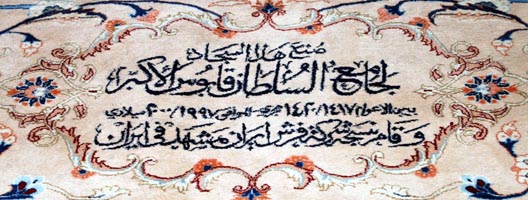 صنع هذا السجاد
لجامع السلطان قابوس الاكبر
بين الاعوام ١٤١٧/١٤٢٠ هجري الموافق ١٩٩٧/٢٠٠٠ ميلادي
وقام بنسجه شركة فرش ايران مشهد في ايران